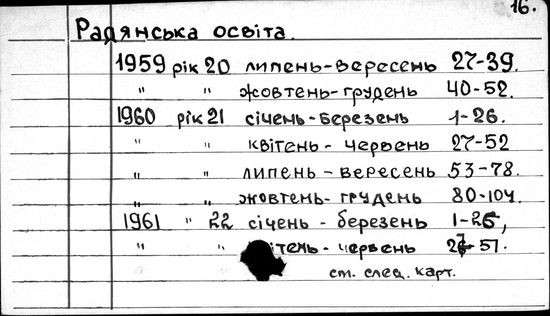 16.
Радянська освіта.
1959 рік 20 липень-вересень 27-39.
" " жовтень-грудень 40-52.
1960 рік 21 січень-березень 1-26.
" " квітень - червень 27-52
" " липень - вересень 53-78.
" " жовтень-грудень 80-104.
1961 " 22 січень - березень 1-25,
" " червень
ст. спец. карт.